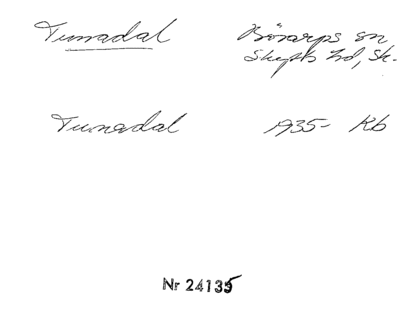 Tunnadal Börarps sn
Skytts hd, Sk.
Tunnadal 1935- Kb
Nr 24135